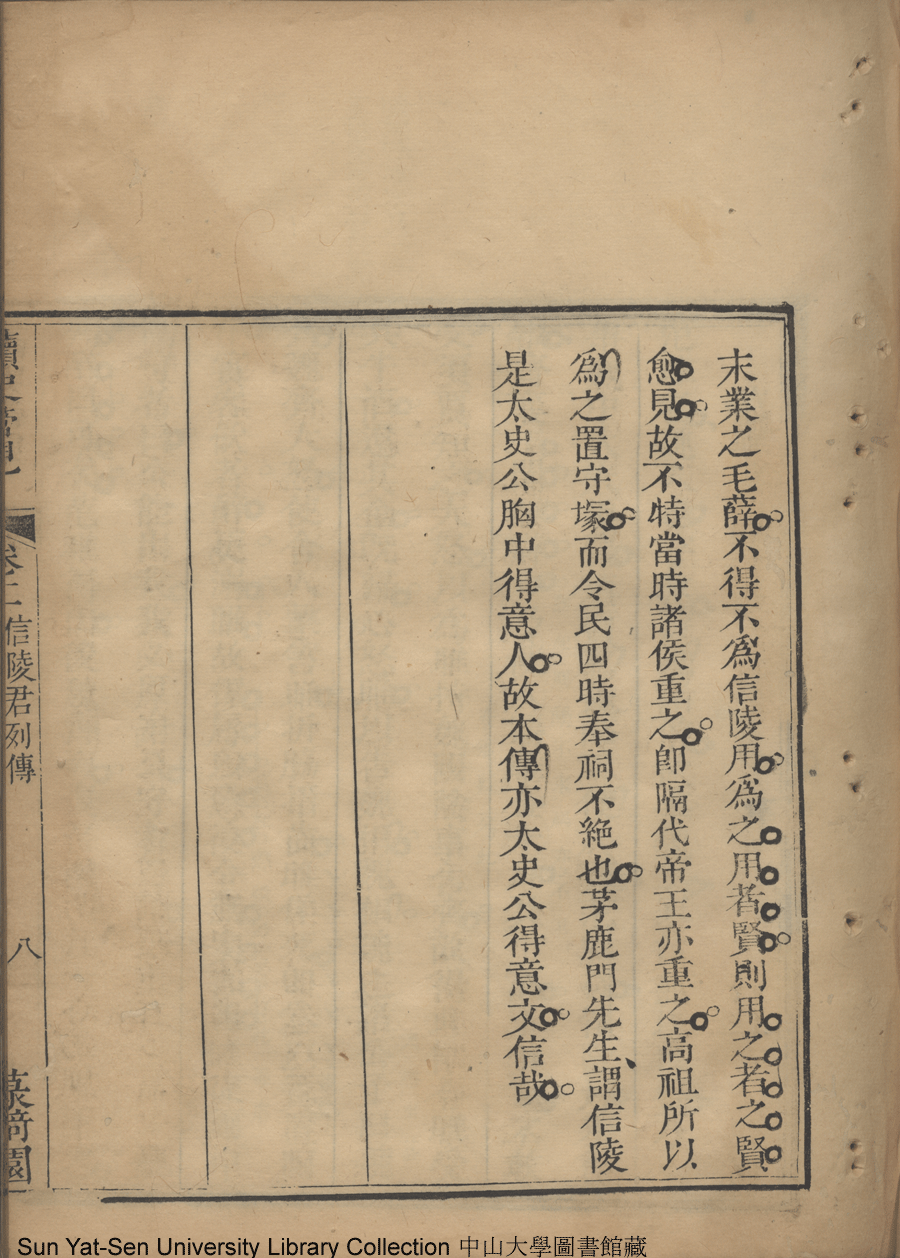 末業之毛薛不得不爲信陵用爲之用者賢則用之者之賢
愈見故不特當時諸侯重之卽隔代帝王亦重之高祖所以
爲之置守塚而令民四時奉祠不絶也茅鹿門先生謂信陵
是太史公胸中得意人故本傳亦太史公得意文信哉
卷二 信陵君列傳
八
園
Sun Yat-Sen University Library Collection 中山大學圖書館藏